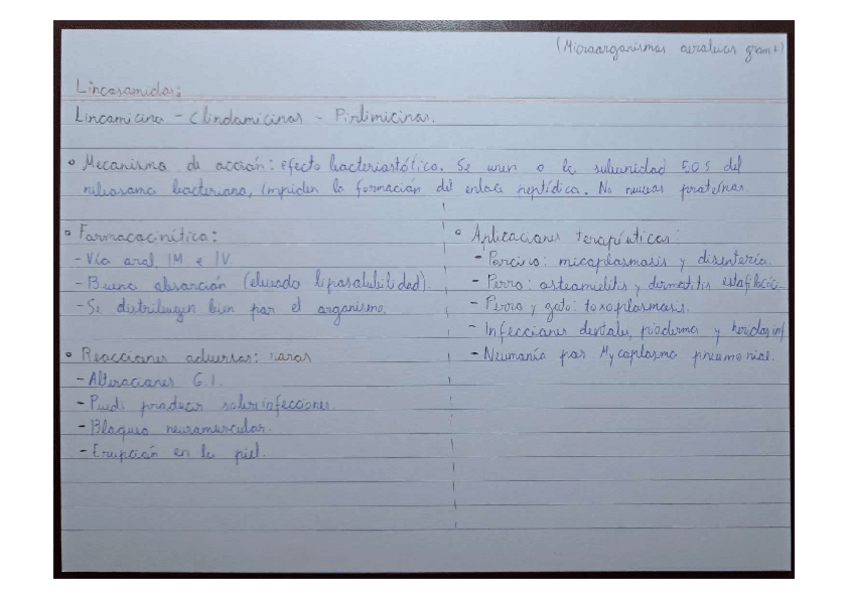 (Microorganismos aerobicos gram +)
Lincosamidas:
Lincomicina - Clindamicinas - Pirlimicinas.
• Mecanismo de acción: Efecto bacteriostático. Se unen a la subunidad 50S del
ribosoma bacteriano, impiden la formación del enlace peptídico. No nuevas proteínas.
• Farmacocinética:
- Vía oral, IM e IV.
- Buena absorción (elevada liposolubilidad).
- Se distribuyen bien por el organismo.
• Reacciones adversas: raras
- Alteraciones G.I.
- Puede producir sobreinfecciones.
- Bloqueo neuromuscular.
- Erupción en la piel.
• Aplicaciones terapéuticas:
- Porcino: micoplasmosis y disentería.
- Perro: osteomielitis y dermatitis estafilocóc.
- Perro y gato: toxoplasmosis.
- Infecciones dentales, pioderma y heridas inf
- Neumonía por Mycoplasma pneumoniae.